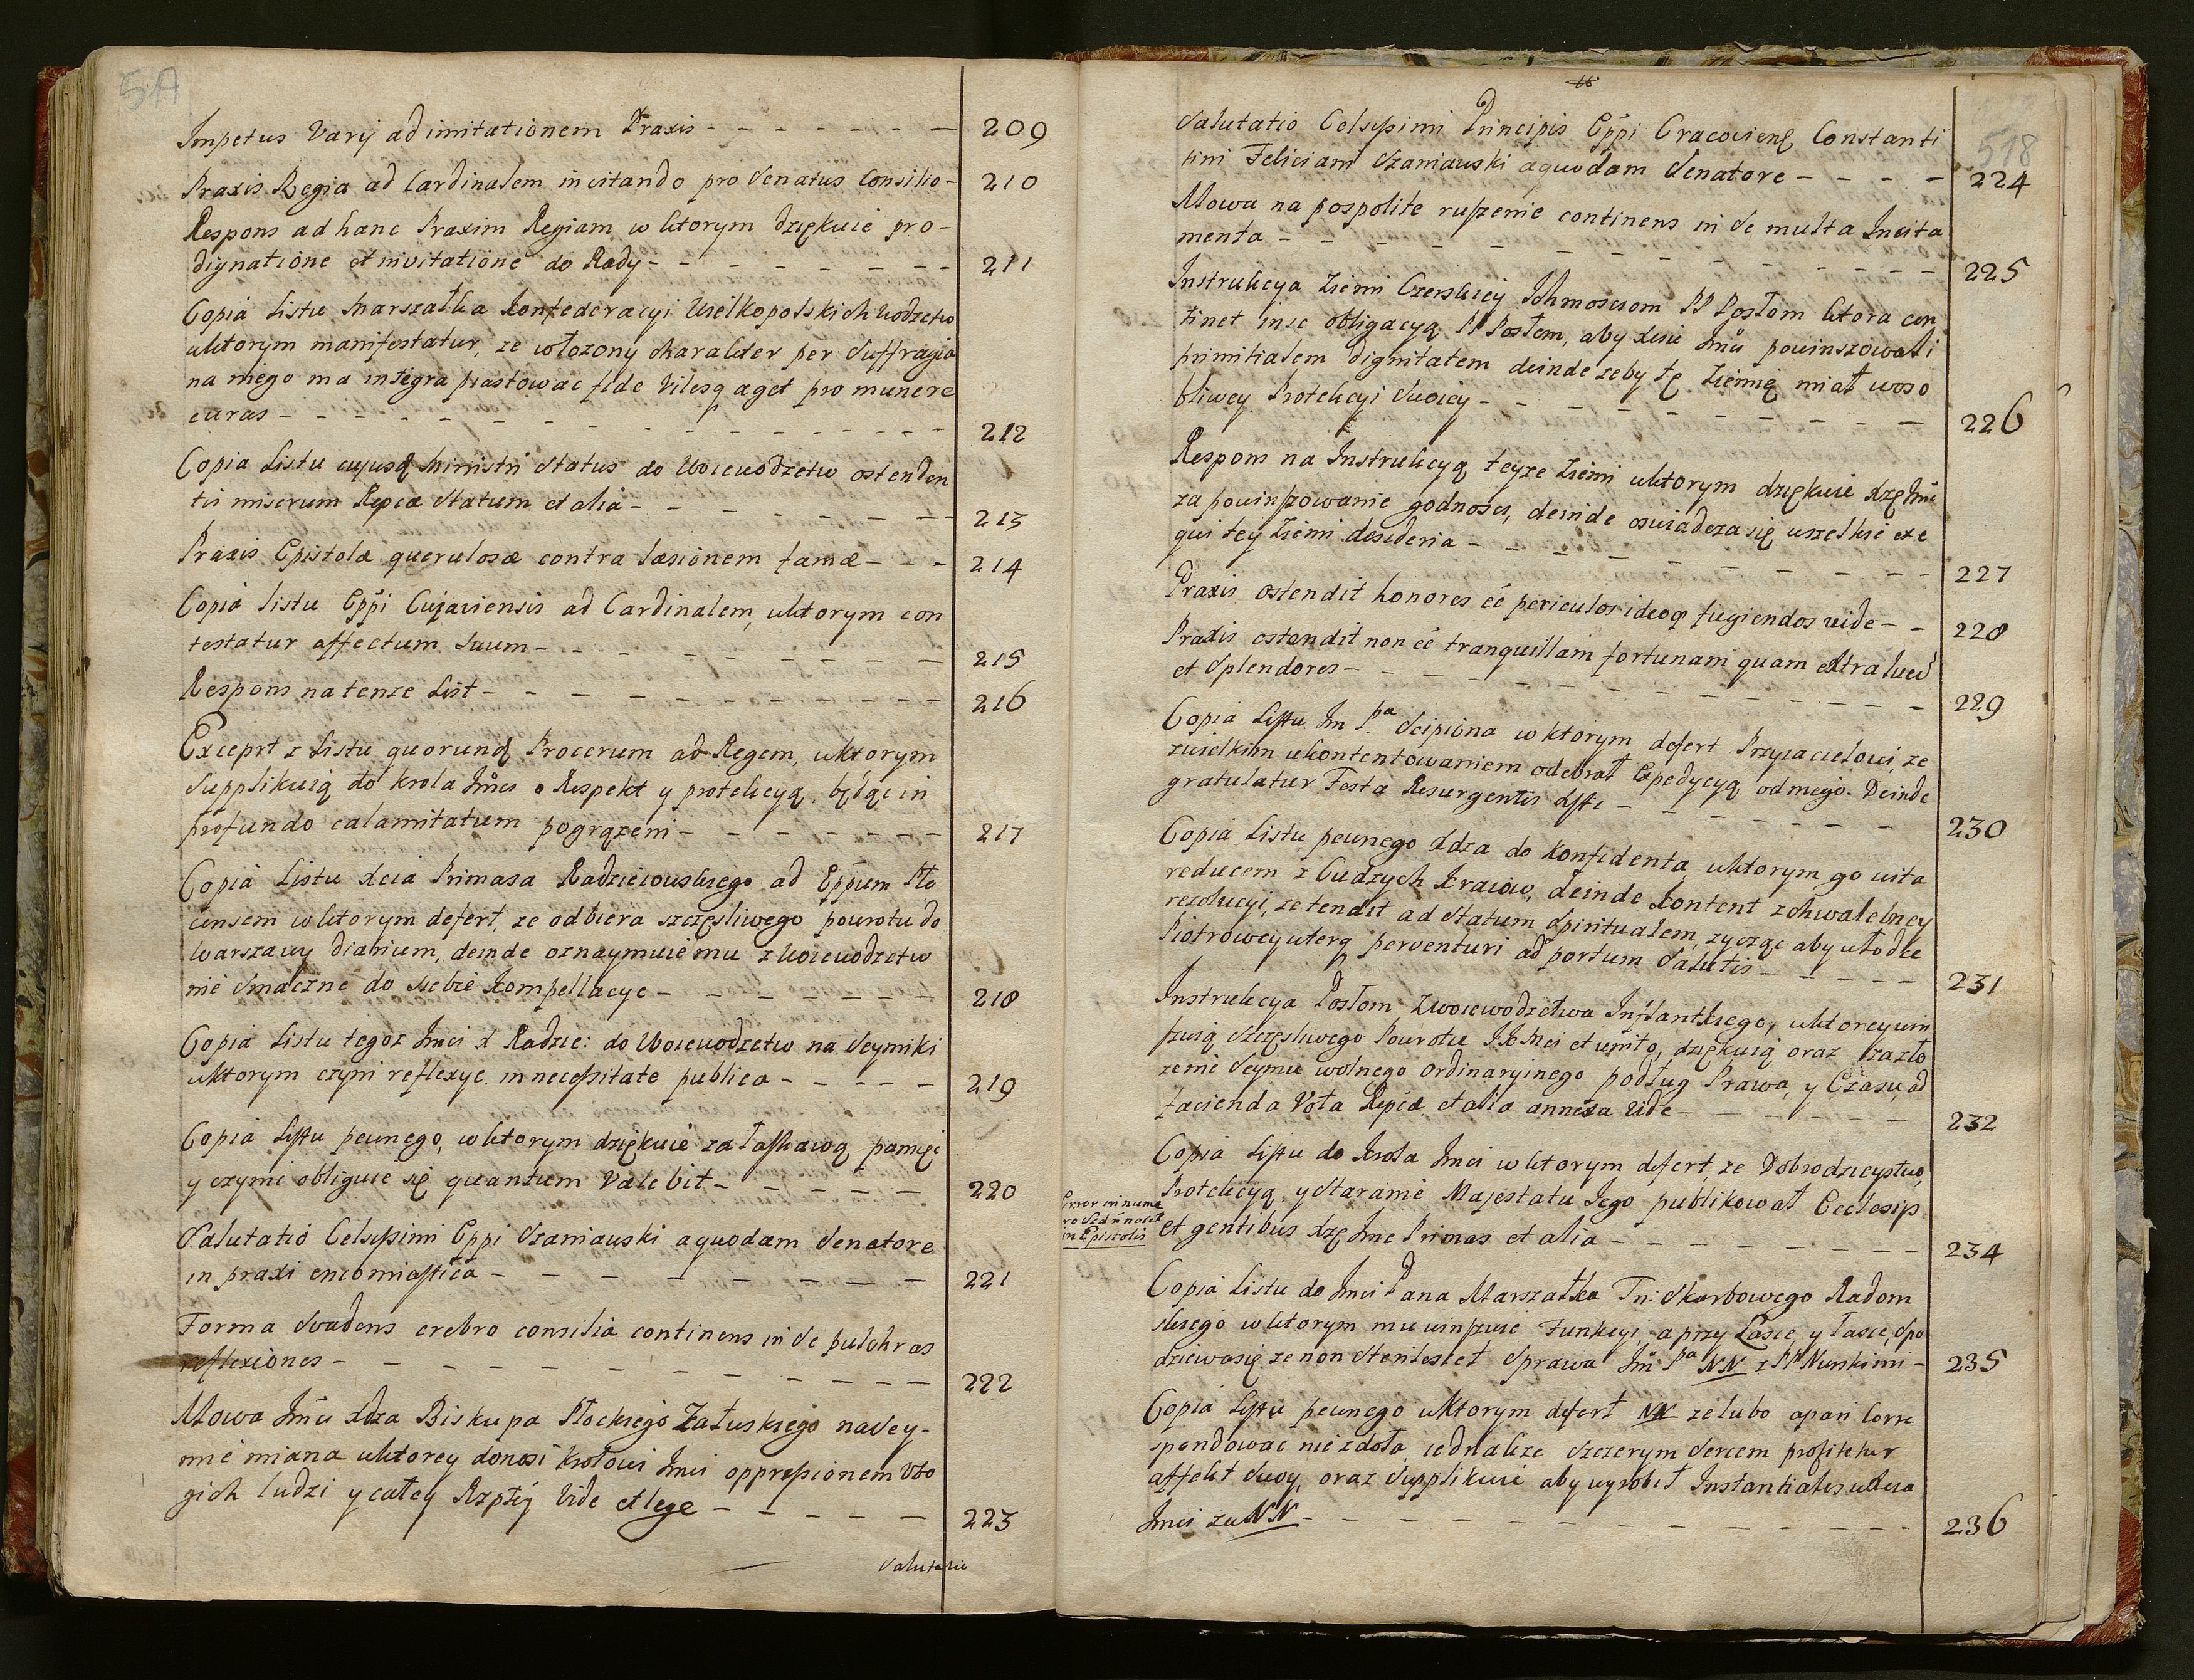 Impetus Varij ad imitationem Praxis - - - - - - - 209
Praxis Regia ad Cardinalem invitando pro Senatus Consilio - 210
Respons ad hanc Praxim Regiam w ktorym dziękuie pro -
dignatione et invitatione do Rady - - - - - - - - 211
Copia Listu Marszałka Konfederacyi Wielkopolskich Wodzctw
wktorym manifestatur, ze włozony charakter per Suffragia
na niego ma integra piastowac fide Vilesq aget pro munere
curas - - - - - - - - - - - - - - 212
Copia Listu cujusd Ministri Status do Woiewodzctw ostenden
tis miserum Reipcæ Statum et alia - - - - - - - - 213
Praxis Epistolæ querulosæ contra læsionem famæ - - - 214
Copia Listu Eppi Cujaviensis ad Cardinalem, wktorym con
testatur affectum Suum - - - - - - - - - 215
Respons na tenze List - - - - - - - - - - - - 216
Excerpt z Listu quorund Procerum ad Regem, wktorym
Supplikuią do krola Jmci o Respekt y protekcyą, będąc in
profundo calamitatum pogrązeni - - - - - - - 217
Copia Listu Xcia Primasa Radzieiowskiego ad Eppum Pło
censem w ktorym defert, ze odbiera szczęsliwego powrotu do
Warszawy diarium, deinde oznaymuie mu z Woiewodzctw
nie Smaczne do siebie Kompellacye - - - - - - - 218
Copia Listu tegoz Jmci X Radzie: do Woiewodzctw na Seymiki
wktorym czyni reflexye in necessitate publica - - - - - 219
Copia Listu pewnego, w ktorym dziękuie za łaskawą pamięc
y czymi obliguie się quantum Valebit - - - - - - 220
Salutatio Celsissimi Eppi Szaniawski a quodam Senatore
in praxi encomiastica - - - - - - - - - 221
Forma Suadens crebro consilia continens in Se pulchras
reflexiones - - - - - - - - - - - - 222
Mowa Jmci Xdza Biskupa Płockiego Załuskiego na Sey-
mie miana wktorey donosi krolowi Jmci oppressionem Ubo
gich ludzi y całey Rzpltey Vide et lege - - - - - 223
Salutatio
518
Salutatio Celsissimi Principis Eppi Cracoviens Constanti
tini Feliciani Szaniawski a quodam Senatore - - - - 224
Mowa na pospolite ruszenie continens in Se multa Incita
menta - - - - - - - - - - - - - 225
Instrukcya Ziemi Czerskiey Ichmosciom PP Posłom ktora con
tinet in se obligacyą PP Posłom, aby Xciu Jmci powinszowali
primitialem dignitatem deinde zeby tę Ziemię miał woso
bliwey Protekcyi Swoiey - - - - - - - - - - 226
Respons na Instrukcyą teyze Ziemi wktorym dziękuie Xzę Jmc
za powinszowanie godnosci, deinde oswiadcza się wszelkie exe
qui tey Ziemi desideria - - - - - - - - - - 227
Praxis ostendit honores eē periculos ideoq fugiendos vide - - 228
Praxis ostendit non eē tranquillam fortunam quam extra luces
et Splendores - - - - - - - - - - - - 229
Copia Listu Jm Pa Scipiona w ktorym defert Przyiacielowi, ze
zwielkim ukontentowaniem odebrał Expedycyą od niego. Deinde
gratulatur Festa Resurgentis Xsti - - - - - - - 230
Copia Listu pewnego Xdza do Konfidenta, wktorym go wita
reducem z Cudzych Kraiow, deinde Kontent z chwalebney
rezolucyi, ze tendit ad Statum Spiritualem, zycząc aby w łodce
Piotrowey uterq perventuri ad portum Salutis - - - - - 231
Instrukcya Posłom Z woiewodztwa Inflantskiego, wktorey win
szuią Szczęsliwego Powrotu JXMci et unito, dziękuią oraz Zazło
zenie Seymu wolnego ordinaryinego podług Prawa, y Czasu, ad
facienda Vota Reipcæ et alia annexa Vide - - - - - - 232
Copia Listu do Krola Jmci w ktorym defert, ze Dobrodzieystwo,
Protekcyą, y Staranie Majestatu Jego publikował Ecclesiis
et gentibus Xzę Jmc Primas et alia - - - - - - - - 234
Error in nume
ro Sed n nocet
in Epistolis
Copia Listu do Jmci Pana Marszałka Tri: Skarbowego Radom
skiego w ktorym mu winszuie Funkcyi, a przy Lasce, y łasce, Spo
dziewa się ze non Steriles et Sprawa Jm Pa NN z PP Nurskimi - 235
Copia Listu pewnego wktorym defert NN ze lubo apari Corre
spondowac nie zdoła, iednakze Szczerym Sercem profitetur
affekt Swoy, oraz Supplikuie aby wyrobił Instantiales
Jmci za NN - - - - - - - - - - - - 236